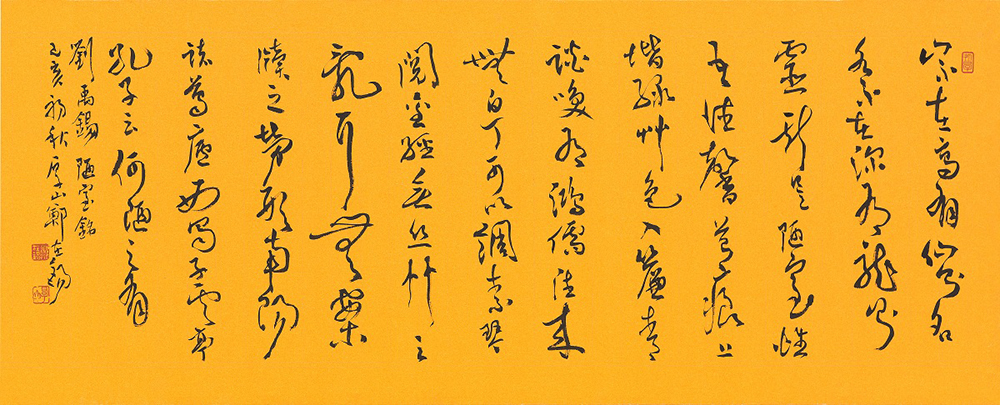 山不在高有仙則名
水不在深有龍則
靈斯是陋室惟
吾德馨苔痕上
堦綠艸色入簾青
談咲有鴻儒往來
無白丁可以調素琴
閱金經無絲竹之
亂耳無案
牘之勞形南陽
諸葛廬西蜀子雲亭
孔子云何陋之有
劉禹錫 陋室銘
亥初秋 山鄭在錫